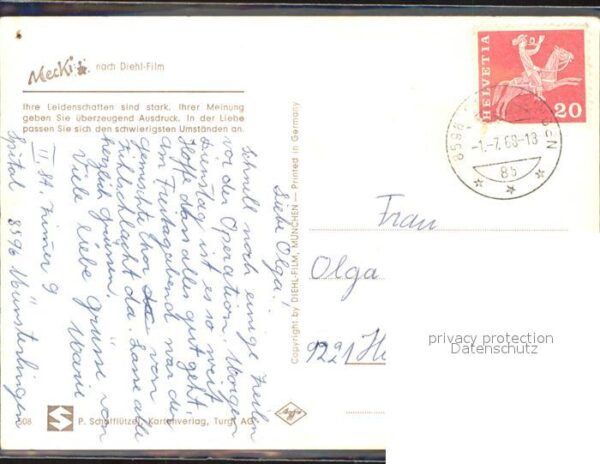 Mecki nach Diehl-Film
Ihre Leidenschaften sind stark. Ihrer Meinung
geben Sie überzeugend Ausdruck. In der Liebe
passen Sie sich den schwierigsten Umständen an.
HELVETIA
20
8596
-1.-7.68-13
8596
Liebe Olga.
Schnell noch einige Zeilen
vor der Operation. Morgen
Dienstag ist es so weit
Hoffe dass alles gut geht.
Am Freitagabend war der
gemischte Chor von
Fruthwilen da. Lasse alle
herzlich grüssen.
Viele liebe Grüsse von
Marie
II. St. Zimmer 9
Spital 8596 Münsterlingen
Copyright by DIEHL-FILM, MÜNCHEN — Printed in Germany
Frau
Olga
9221
privacy protection
Datenschutz
508
P. Schifflützel, Kartenverlag, Turgi AG
Agfa